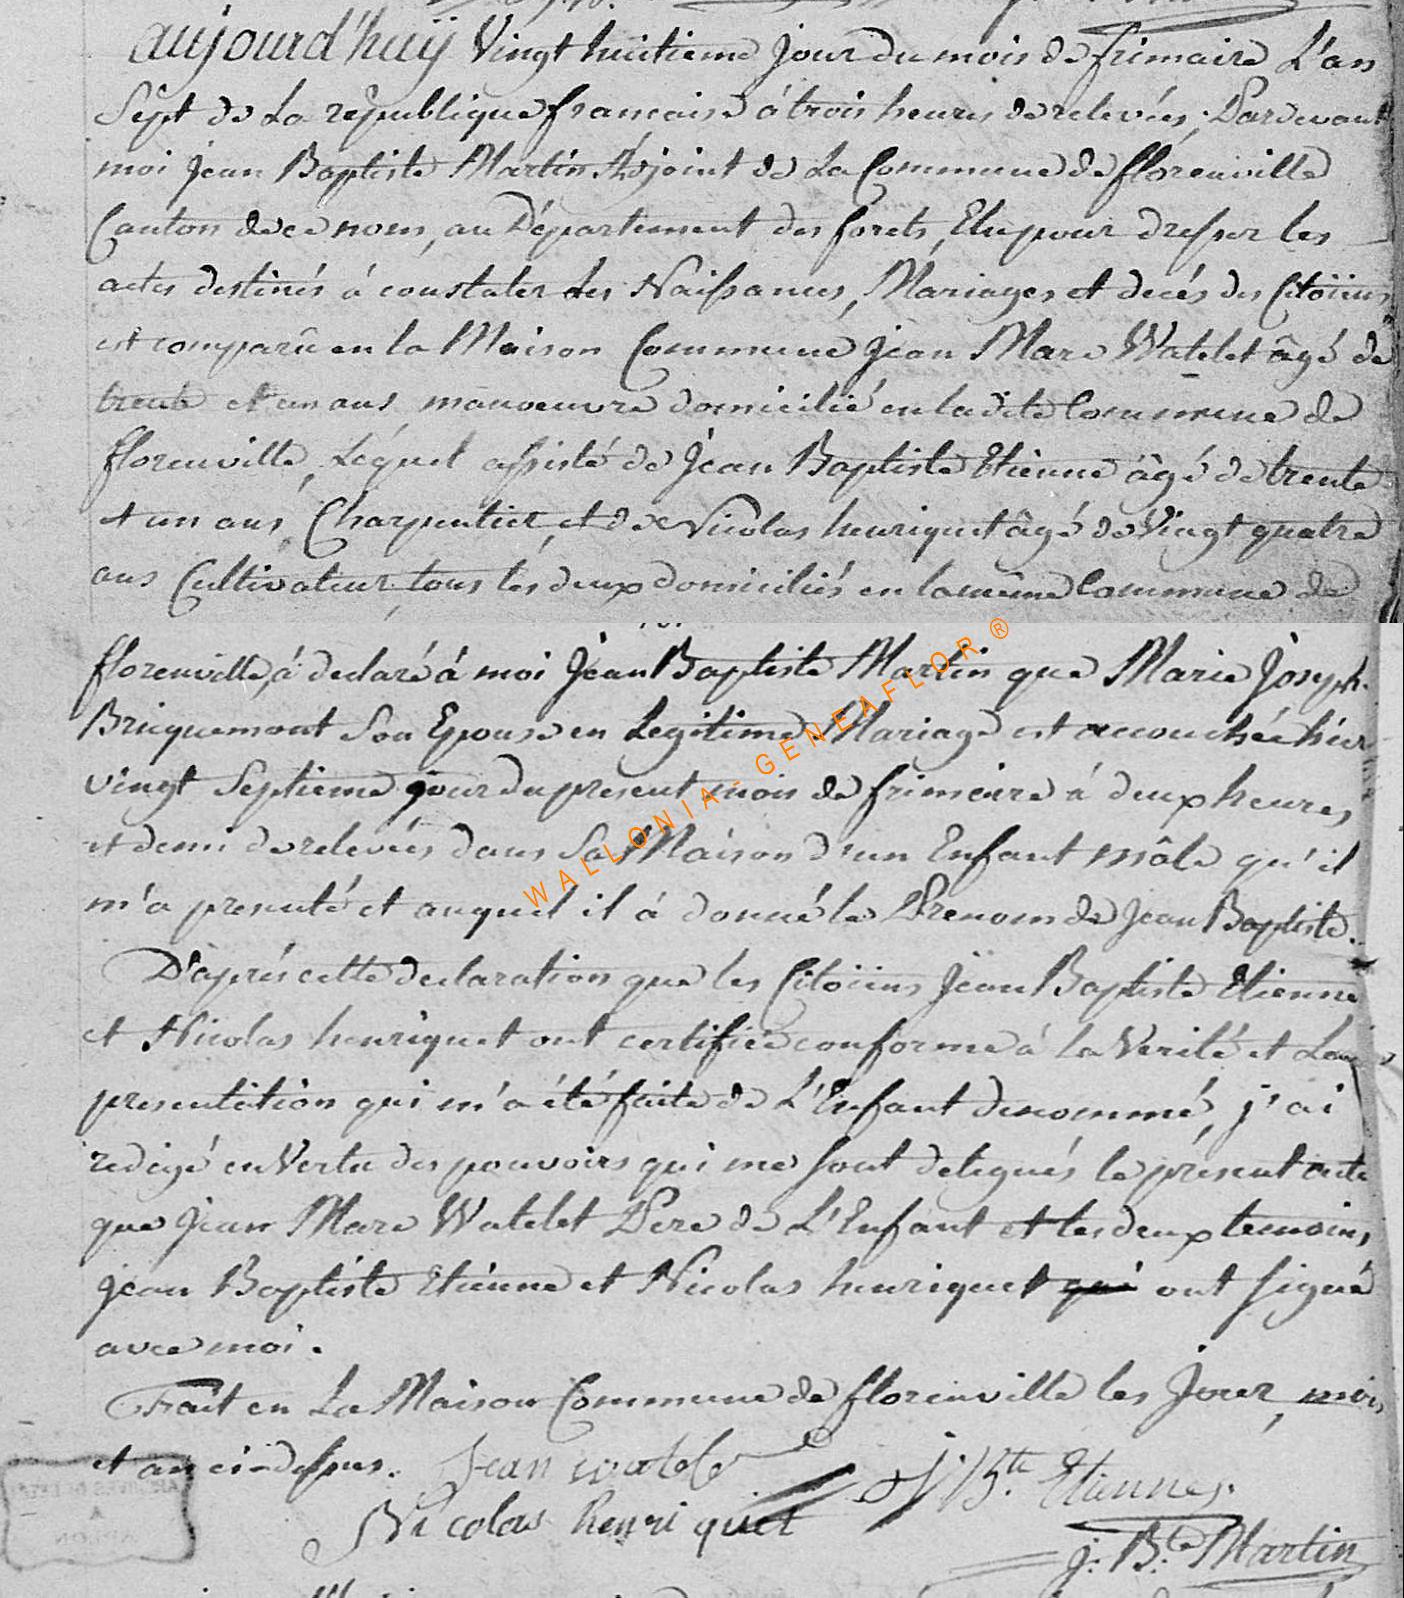 aujourd'huÿ Vingt huitieme jour du mois de frimaire L'an
Sept de La république francaise à trois heures de relevées, Pardevant
moi jean Baptiste Martin Adjoint de La Commune de florenville
Canton de ce nom, au Département des forets, Elu pour dresser les
actes destinés à constater les Naissances, Mariages et decés des Citoïens
est comparû en la Maison Commune jean Marc Watelet âgé de
trente et un ans manoeuvre domicilié en la dite Commune de
florenville, Léquel assisté de jean Baptiste Etienne âgé de trente
et un ans, Charpentier, et de Nicolas henriquet âgé de Vingt quatre
ans Cultivateur, tous les deux domiciliés en la même Commune de
florenville, à declaré à moi jean Baptiste Martin que Marie joseph
Bricquemont Son Epouse en Legitime Mariage est accouchée hier
vingt Septieme jour du present mois de frimaire à deux heures
et demi de relevées dans Sa Maison d'un Enfant mâle qu'il
m'a presenté et auquel il à donné le Prenom de jean Baptiste.
D'aprés cette declaration que les Citoïens jean Baptiste Etienne
et Nicolas henriquet ont certifiée conforme à la Verité et La
presentation qui m'a été faite de L'Enfant denommé, j'ai
redigé en Vertu des pouvoirs qui me sont delegués le présent acte
que jean Marc Watelet Pere de L'Enfant et les deux temoins
jean Baptiste Etienne et Nicolas henriquet qui ont signé
avec moi.
Fait en La Maison Commune de florenville les Jour, mois
et an ci-dessus. Jean watele
J: Bte. Etienne
Nicolas henriquet
j: B.te Martin
WALLONIA - GENEAFLOR ®